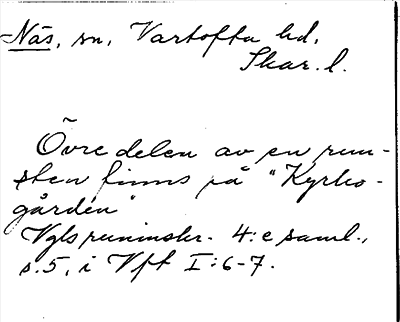 Näs, sn, Vartofta hd.
Skar. l.
Övre delen av en run-
sten finns på "Kyrko-
gården"
Vgls runinskr. 4:e saml.,
s.5, i Vft I:6-7.